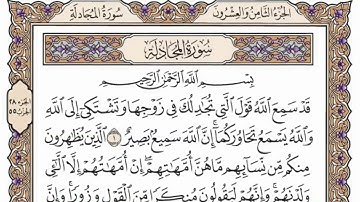 الجزء الثامن والعشرون
سورة المجادلة
سورة المجادلة
الجزء ٢٨
الحزب ٥٥
بِسْمِ ٱللَّهِ ٱلرَّحْمَٰنِ ٱلرَّحِيمِ
قَدْ سَمِعَ ٱللَّهُ قَوْلَ ٱلَّتِى تُجَٰدِلُكَ فِى زَوْجِهَا وَتَشْتَكِىٓ إِلَى ٱللَّهِ
وَٱللَّهُ يَسْمَعُ تَحَاوُرَكُمَآ إِنَّ ٱللَّهَ سَمِيعٌۢ بَصِيرٌ ١ ٱلَّذِينَ يُظَٰهِرُونَ
مِنكُم مِّن نِّسَآئِهِم مَّا هُنَّ أُمَّهَٰتِهِمْ إِنْ أُمَّهَٰتُهُمْ إِلَّا ٱلَّٰٓـِٔى
وَلَدْنَهُمْ وَإِنَّهُمْ لَيَقُولُونَ مُنكَرًا مِّنَ ٱلْقَوْلِ وَزُورًا وَإِنَّ